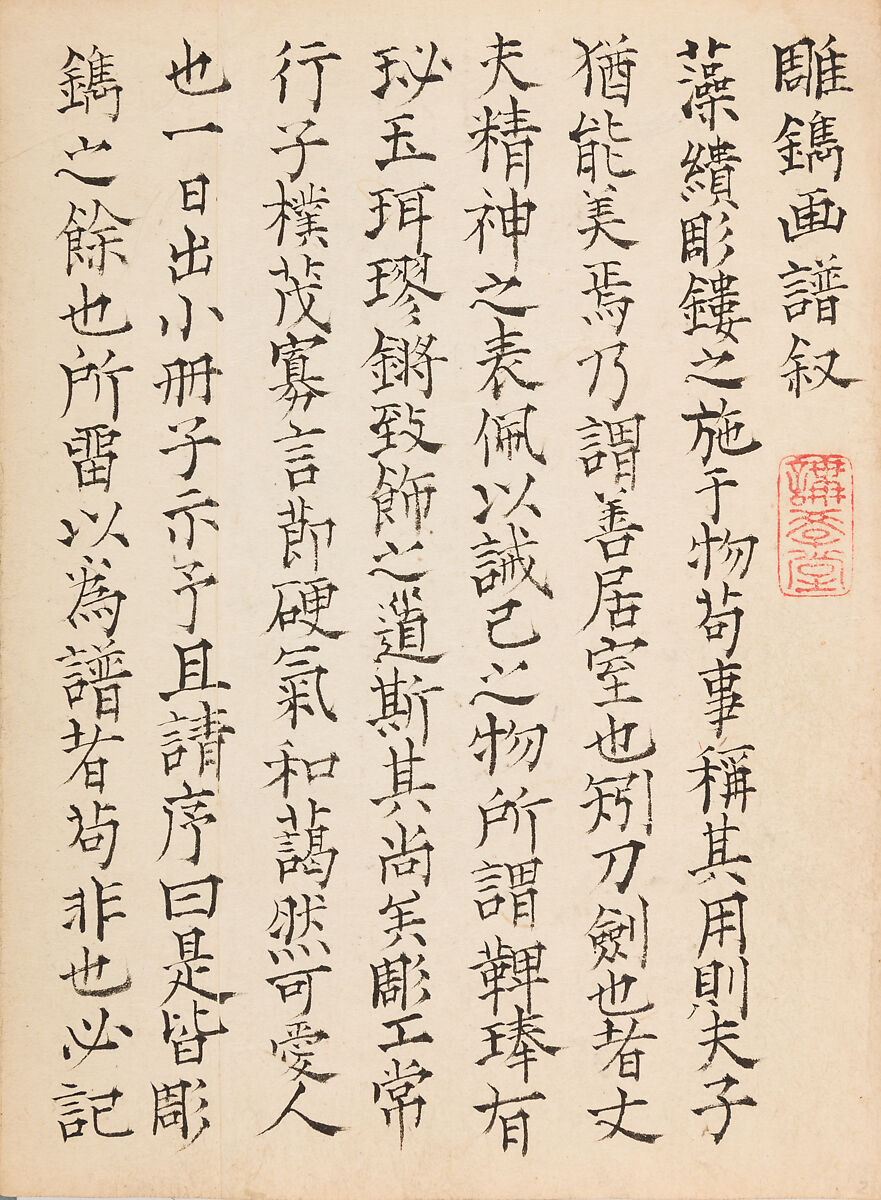 雕鐫画譜叙
講孝堂
藻繢彫鏤之施于物苟事稱其用則夫子
猶能美焉乃謂善居室也矧刀劍也者丈
夫精神之表佩以誡己之物所謂鞞琫有
珌玉珥璆鏘致飾之道斯其尚矣彫工常
行子樸茂寡言節硬氣和藹然可愛人
也一日出小冊子示予且請序曰是皆彫
鐫之餘也所畱以為譜者苟非也必記